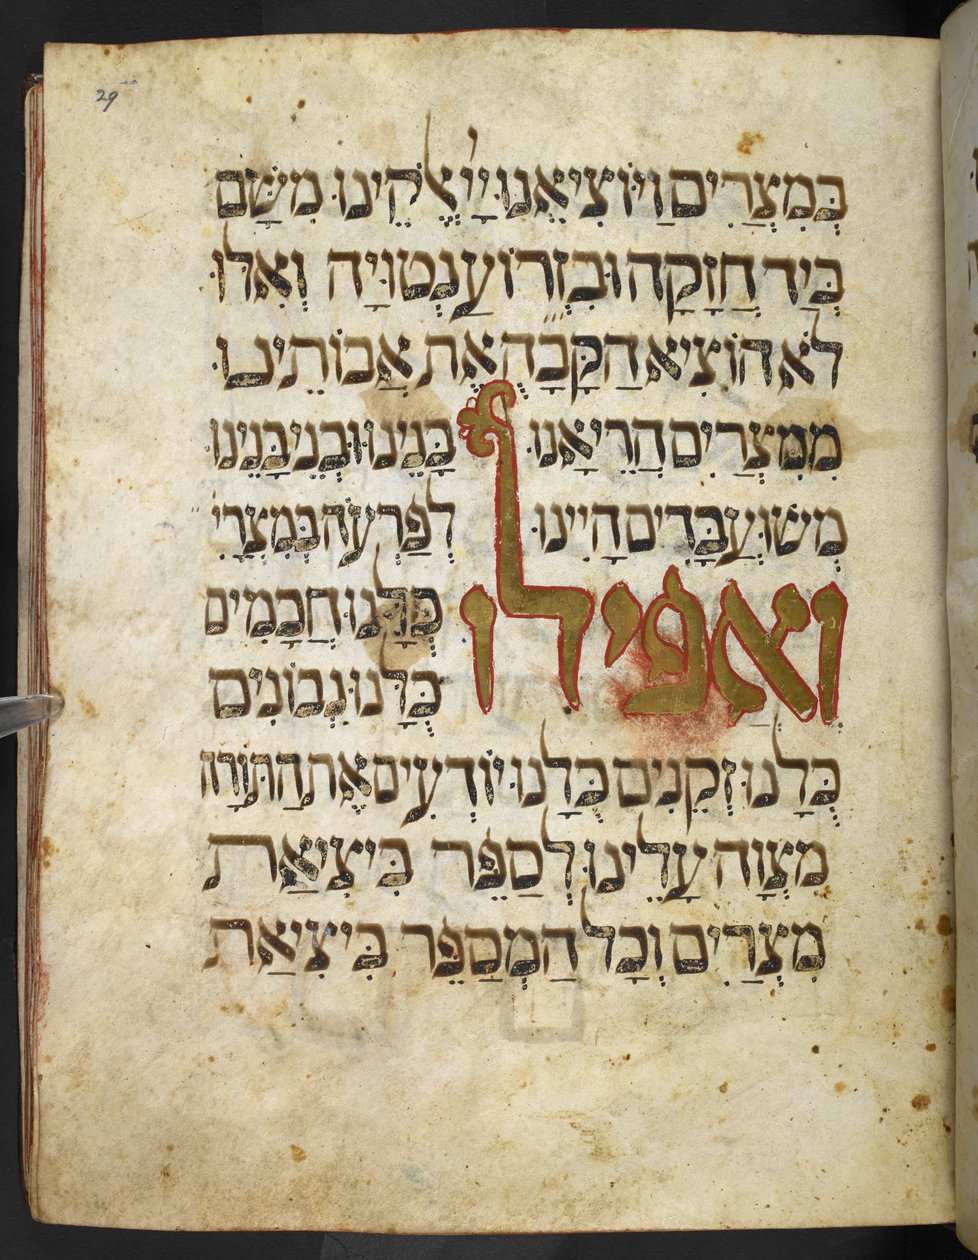 29
בְּמִצְרַיִם וַיּוֹצִיאֵנוּ יְיָ אֱלֹקֵינוּ מִשָּׁם
בְּיַד חֲזָקָה וּבִזְרוֹעַ נְטוּיָה וְאִלּוּ
לֹא הוֹצִיא הַקָּבָּה אֶת אֲבוֹתֵינוּ
מִמִּצְרַיִם הֲרֵי אָנוּ בָּנֵינוּ וּבְנֵי בָּנֵינוּ
מְשׁוּעְבָּדִים הָיִינוּ לְפַרְעֹה בְּמִצְרָיִ
וַאֲפִילוּ כֻּלָּנוּ חֲכָמִים
כֻּלָּנוּ נְבוֹנִים
כֻּלָּנוּ זְקֵנִים כֻּלָּנוּ יוֹדְעִים אֶת הַתּוֹרָה
מִצְוָה עָלֵינוּ לְסַפֵּר בִּיצִיאַת
מִצְרַיִם וְכָל הַמְסַפֵּר בִּיצִיאַת